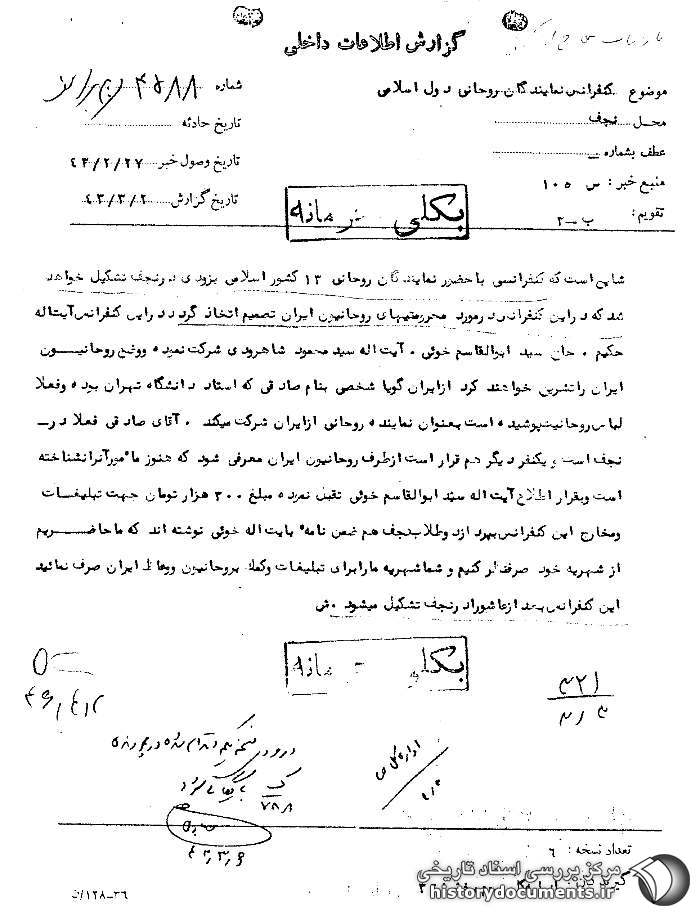 گزارش اطلاعات داخلی
موضوع کنفرانس نمایندگان روحانی دول اسلامی
محل نجف
عطف بشماره
منبع خبر : س ۱۰۵
تقویم : ب ـ ۲
شماره ۴۵۸۸
تاریخ حادثه
تاریخ وصول خبر ۴۳/۲/۲۷
تاریخ گزارش ۴۳/۳/۲
بکلی محرمانه
شایع است که کنفرانسی با حضور نمایندگان روحانی ۱۳ کشور اسلامی بزودی در نجف تشکیل خواهد
شد که در این کنفرانس در مورد محرومیتهای روحانیون ایران تصمیم اتخاذ گردد در این کنفرانس آیت اله
حکیم ، حاج سید ابوالقاسم خوئی ، آیت اله سید محمود شاهرودی شرکت نموده و وضع روحانیون
ایران را تشریح خواهند کرد از ایران گویا شخصی بنام صادقی که استاد دانشگاه تهران بوده و فعلا
لباس روحانیت پوشیده است بعنوان نماینده روحانی از ایران شرکت میکند . آقای صادقی فعلا در
نجف است و یکنفر دیگر هم قرار است از طرف روحانیون ایران معرفی شود که هنوز مأمور آنرا نشناخته
است و بقرار اطلاع آیت اله سید ابوالقاسم خوئی تقبل نموده مبلغ ۳۰۰ هزار تومان جهت تبلیغات
و مخارج این کنفرانس بپردازد و طلاب نجف هم ضمن نامه بایت اله خوئی نوشته اند که ما حاضریم
از شهریه خود صرفنظر کنیم و شما شهریه ما را برای تبلیغات و کمک بروحانیون و وعاظ ایران صرف نمائید
این کنفرانس بعد از عاشورا در نجف تشکیل میشود . ش
بکلی محرمانه
۳۲۱
اداره کل س
۷۸۸
۴۳/۳/۶
تعداد نسخه : ۶
۳۶-۱۲۸/ن
مرکز بررسی اسناد تاریخی
historydocuments.ir